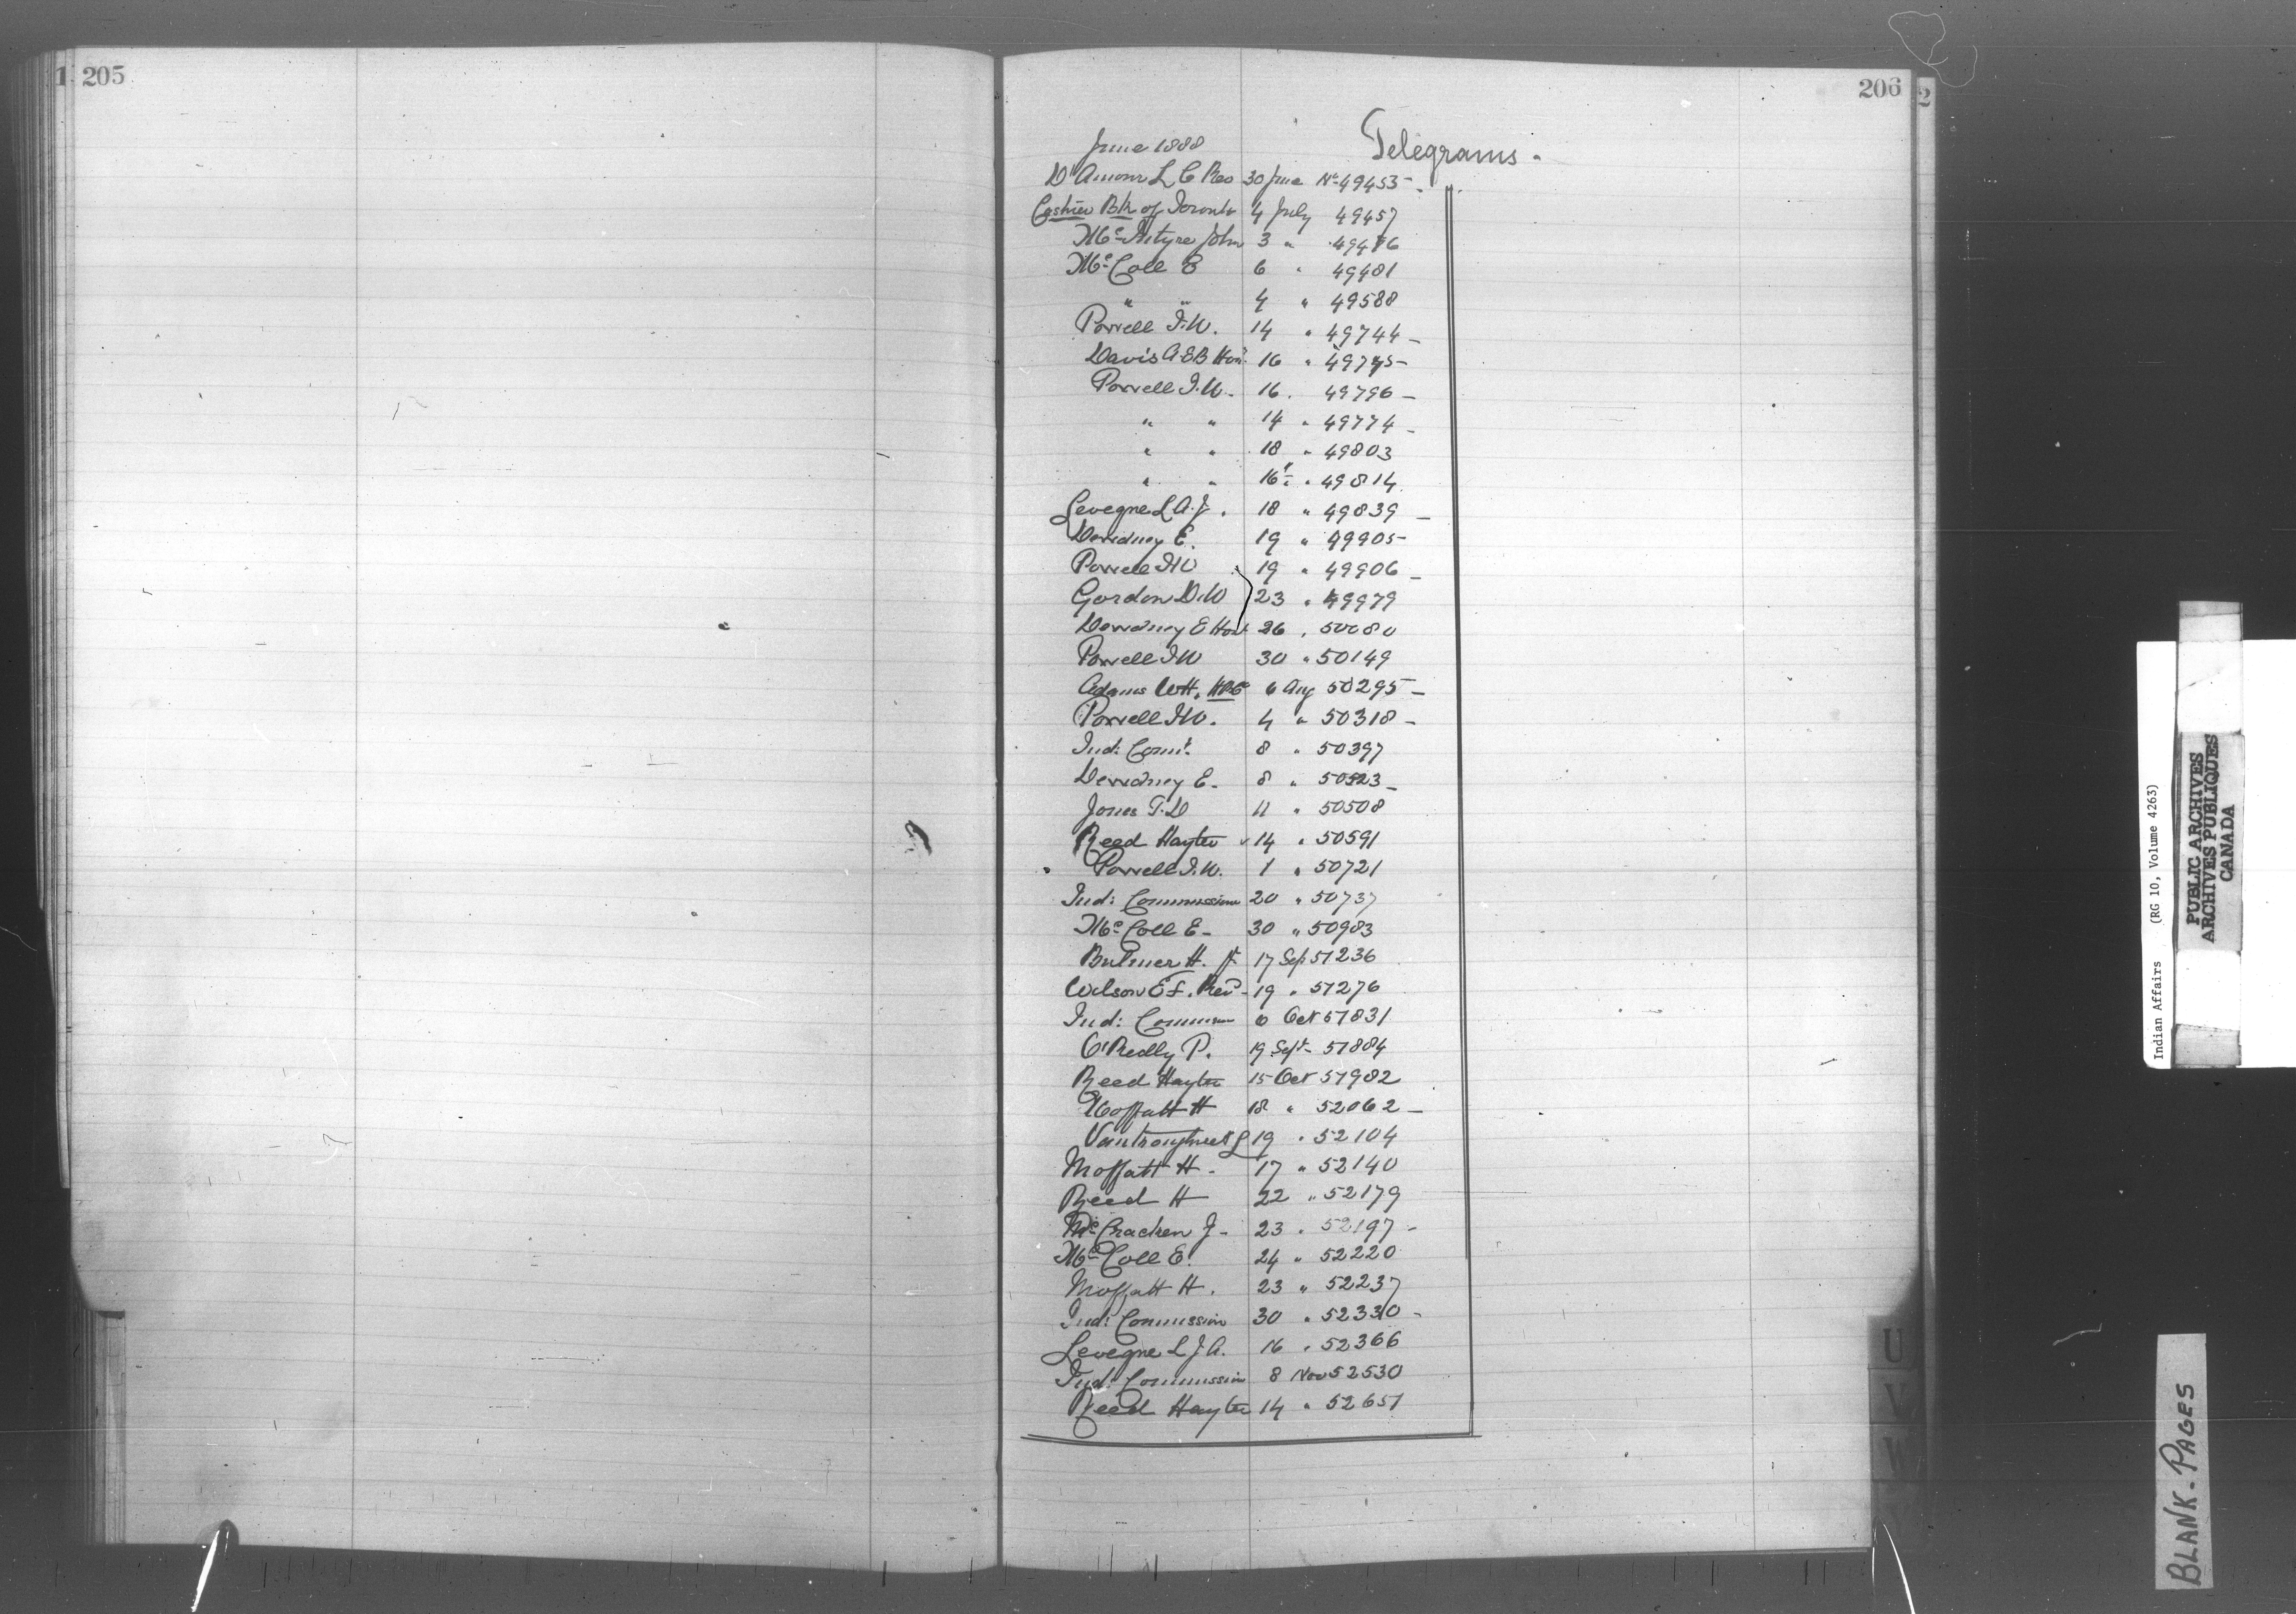 1 205
206 2
June 1888
Telegrams.
D'Amour L C Rev 30 June No 49453
Cashier Bk of Toronto 4 July 49457
McIntyre John 3 " 49476
McColl E 6 " 49481
" " 4 " 49588
Powell I.W. 14 " 49744
Davis A E B Hon 16 " 49775
Powell I.W. 16 . 49796
" " 14 " 49774
" " 18 " 49803
" " 16 " 49814
Levegne L A. J. 18 " 49839
Dewdney E. 19 " 49905
Powell I W 19 " 49906
Gordon D.W 23 " 49979
Dewdney E Hon 26 " 50080
Powell I W 30 " 50149
Adams WH. 6 Aug 50295
Powell I W. 4 " 50318
Ind: Comr. 8 " 50397
Dewdney E. 8 " 50523
Jones T.D 11 " 50508
Reed Hayter 14 " 50591
Powell I.W. 1 " 50721
Ind: Commission 20 " 50737
McColl E 30 " 50983
Bulmer H. Jr 17 Sep 51236
Wilson E F. Revd 19 " 51276
Ind: Commission 6 Oct 51831
O'Reilly P. 19 Sept 51884
Reed Hayter 15 Oct 51982
Moffatt H 18 " 52062
Vankoughnet L 19 " 52104
Moffatt H. 17 " 52140
Reed H 22 " 52179
McCracken J 23 " 52197
McColl E. 24 " 52220
Moffatt H. 23 " 52237
Ind: Commission 30 " 52330
Levegne L J A. 16 " 52366
Ind: Commission 8 Nov 52530
Reed Hayter 14 " 52651
U
V
W
Indian Affairs (RG 10, Volume 4263)
PUBLIC ARCHIVES
ARCHIVES PUBLIQUES
CANADA
BLANK-PAGES